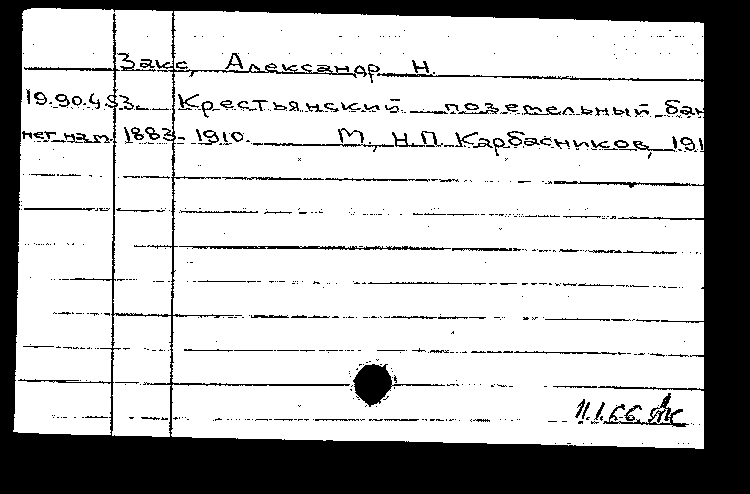 Закс, Александр Н.
19.90.4.53. Крестьянский поземельный бан
нет на п. 1883-1910. М., Н.П. Карбасников, 191
11.1.66.